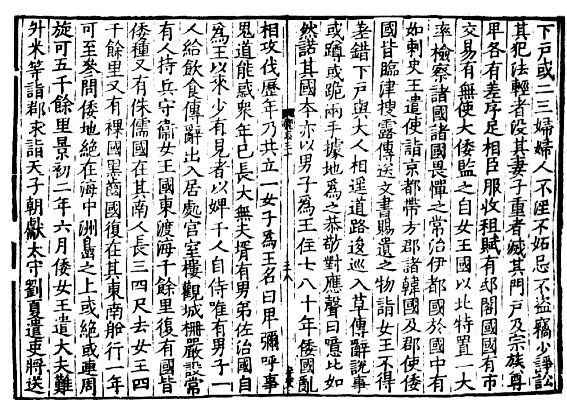 下戶或二三婦婦人不淫不妬忌不盗竊少諍訟
其犯法輕者没其妻子重者滅其門戶及宗族尊
卑各有差序足相臣服收租賦有邸閣國國有市
交易有無使大倭監之自女王國以北特置一大
率檢察諸國諸國畏憚之常治伊都國於國中有
如刺史王遣使詣京都帶方郡諸韓國及郡使倭
國皆臨津搜露傳送文書賜遺之物詣女王不得
差錯下戶與大人相逢道路逡巡入草傳辭說事
或蹲或跪兩手據地爲之恭敬對應聲曰噫比如
然諾其國本亦以男子爲王住七八十年倭國亂
相攻伐歷年乃共立一女子爲王名曰卑彌呼事
鬼道能惑衆年已長大無夫壻有男弟佐治國自
爲王以來少有見者以婢千人自侍唯有男子一
人給飲食傳辭出入居處宫室樓觀城柵嚴設常
有人持兵守衛女王國東渡海千餘里復有國皆
倭種又有侏儒國在其南人長三四尺去女王四
千餘里又有裸國黑齒國復在其東南船行一年
可至參問倭地絶在海中洲島之上或絶或連周
旋可五千餘里景初二年六月倭女王遣大夫難
升米等詣郡求詣天子朝獻太守劉夏遣吏將送